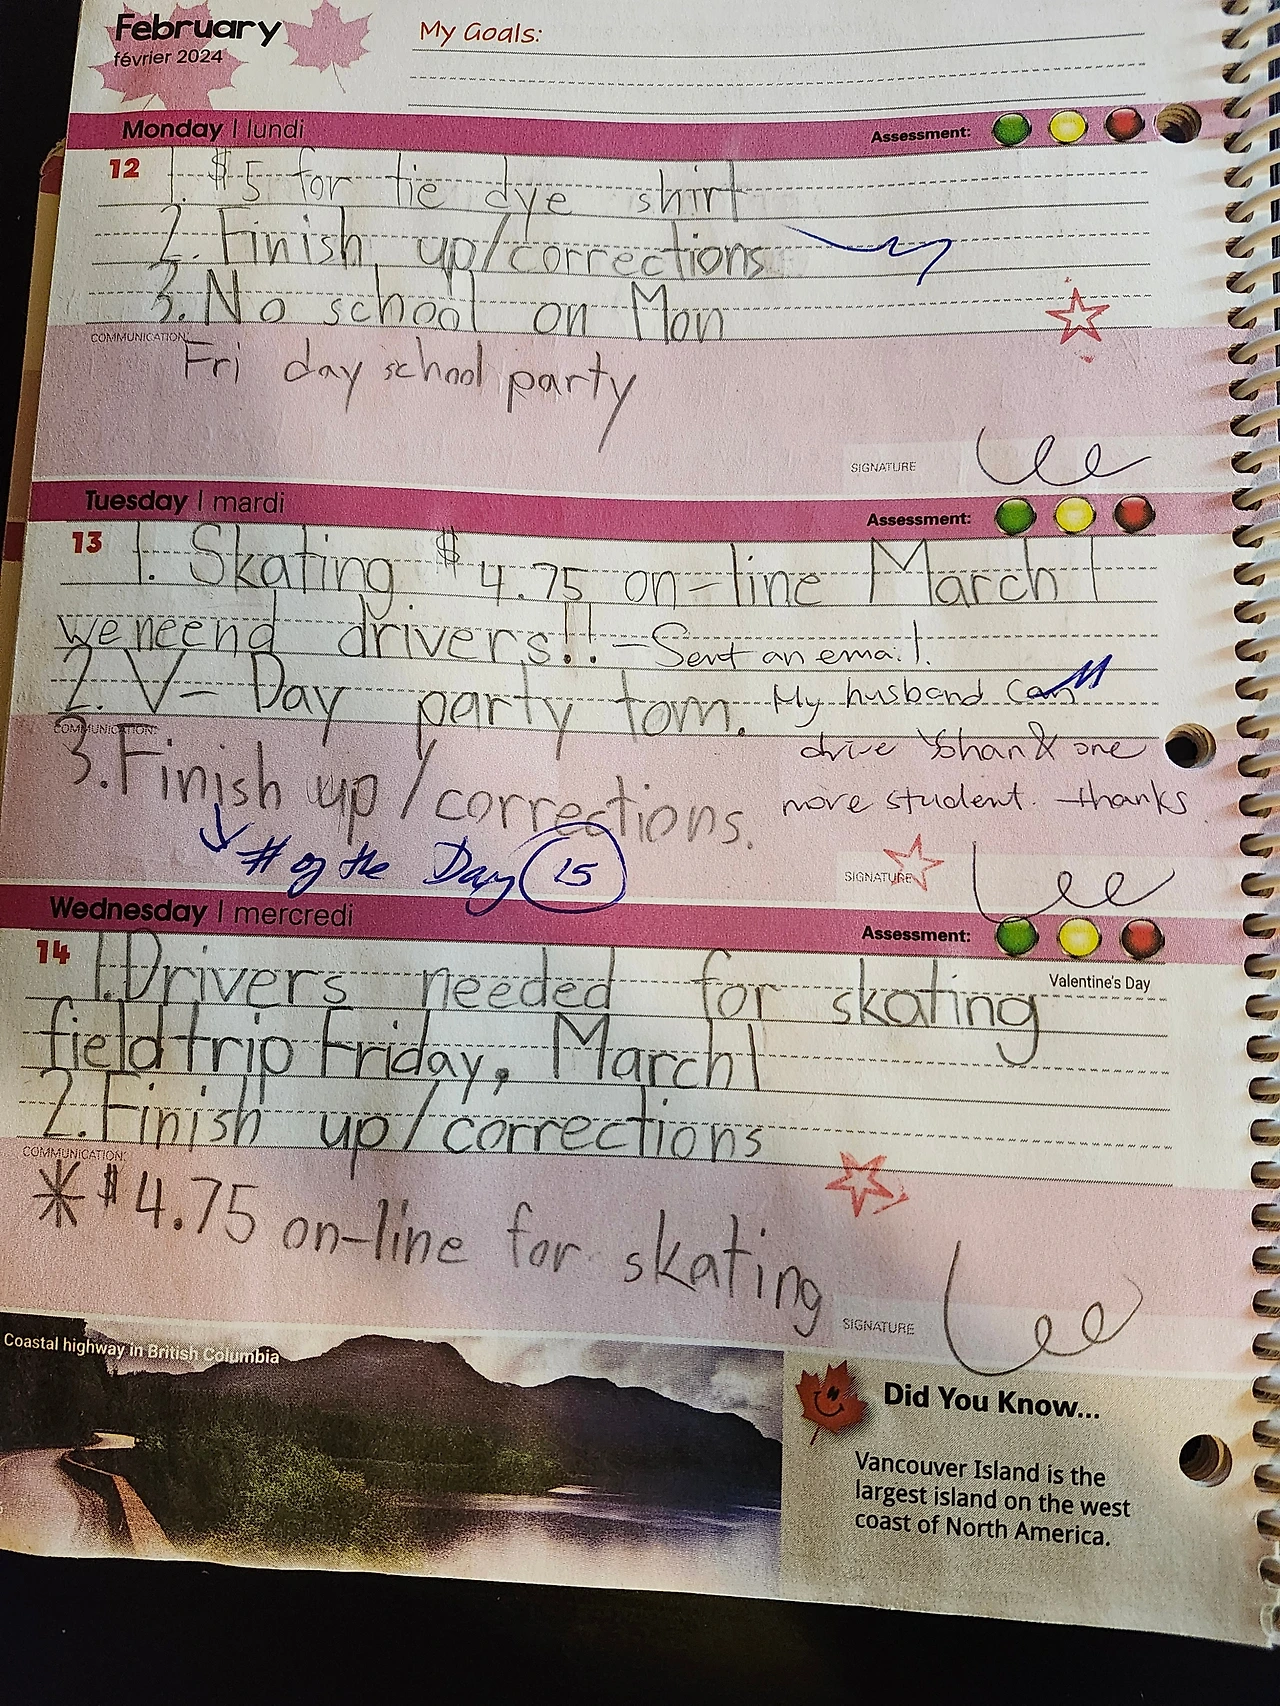 February
février 2024
My Goals:
Monday | lundi
Assessment:
12
1. $5 for tie dye shirt
2. Finish up/corrections
3. No school on Mon
COMMUNICATION:
Fri day school party
SIGNATURE
Lee
Tuesday | mardi
Assessment:
13
1. Skating $4.75 on-line March 1
we neend drivers!! - Sent an email.
2. V-Day party tom. My husband can
COMMUNICATION:
drive & one
3. Finish up/corrections. more student. thanks.
# of the Day 15
SIGNATURE
Lee
Wednesday | mercredi
Assessment:
14
Valentine's Day
1. Drivers needed for skating
field trip Friday, March 1
2. Finish up/corrections
COMMUNICATION:
* $4.75 on-line for skating
SIGNATURE
Lee
Coastal highway in British Columbia
Did You Know...
Vancouver Island is the
largest island on the west
coast of North America.